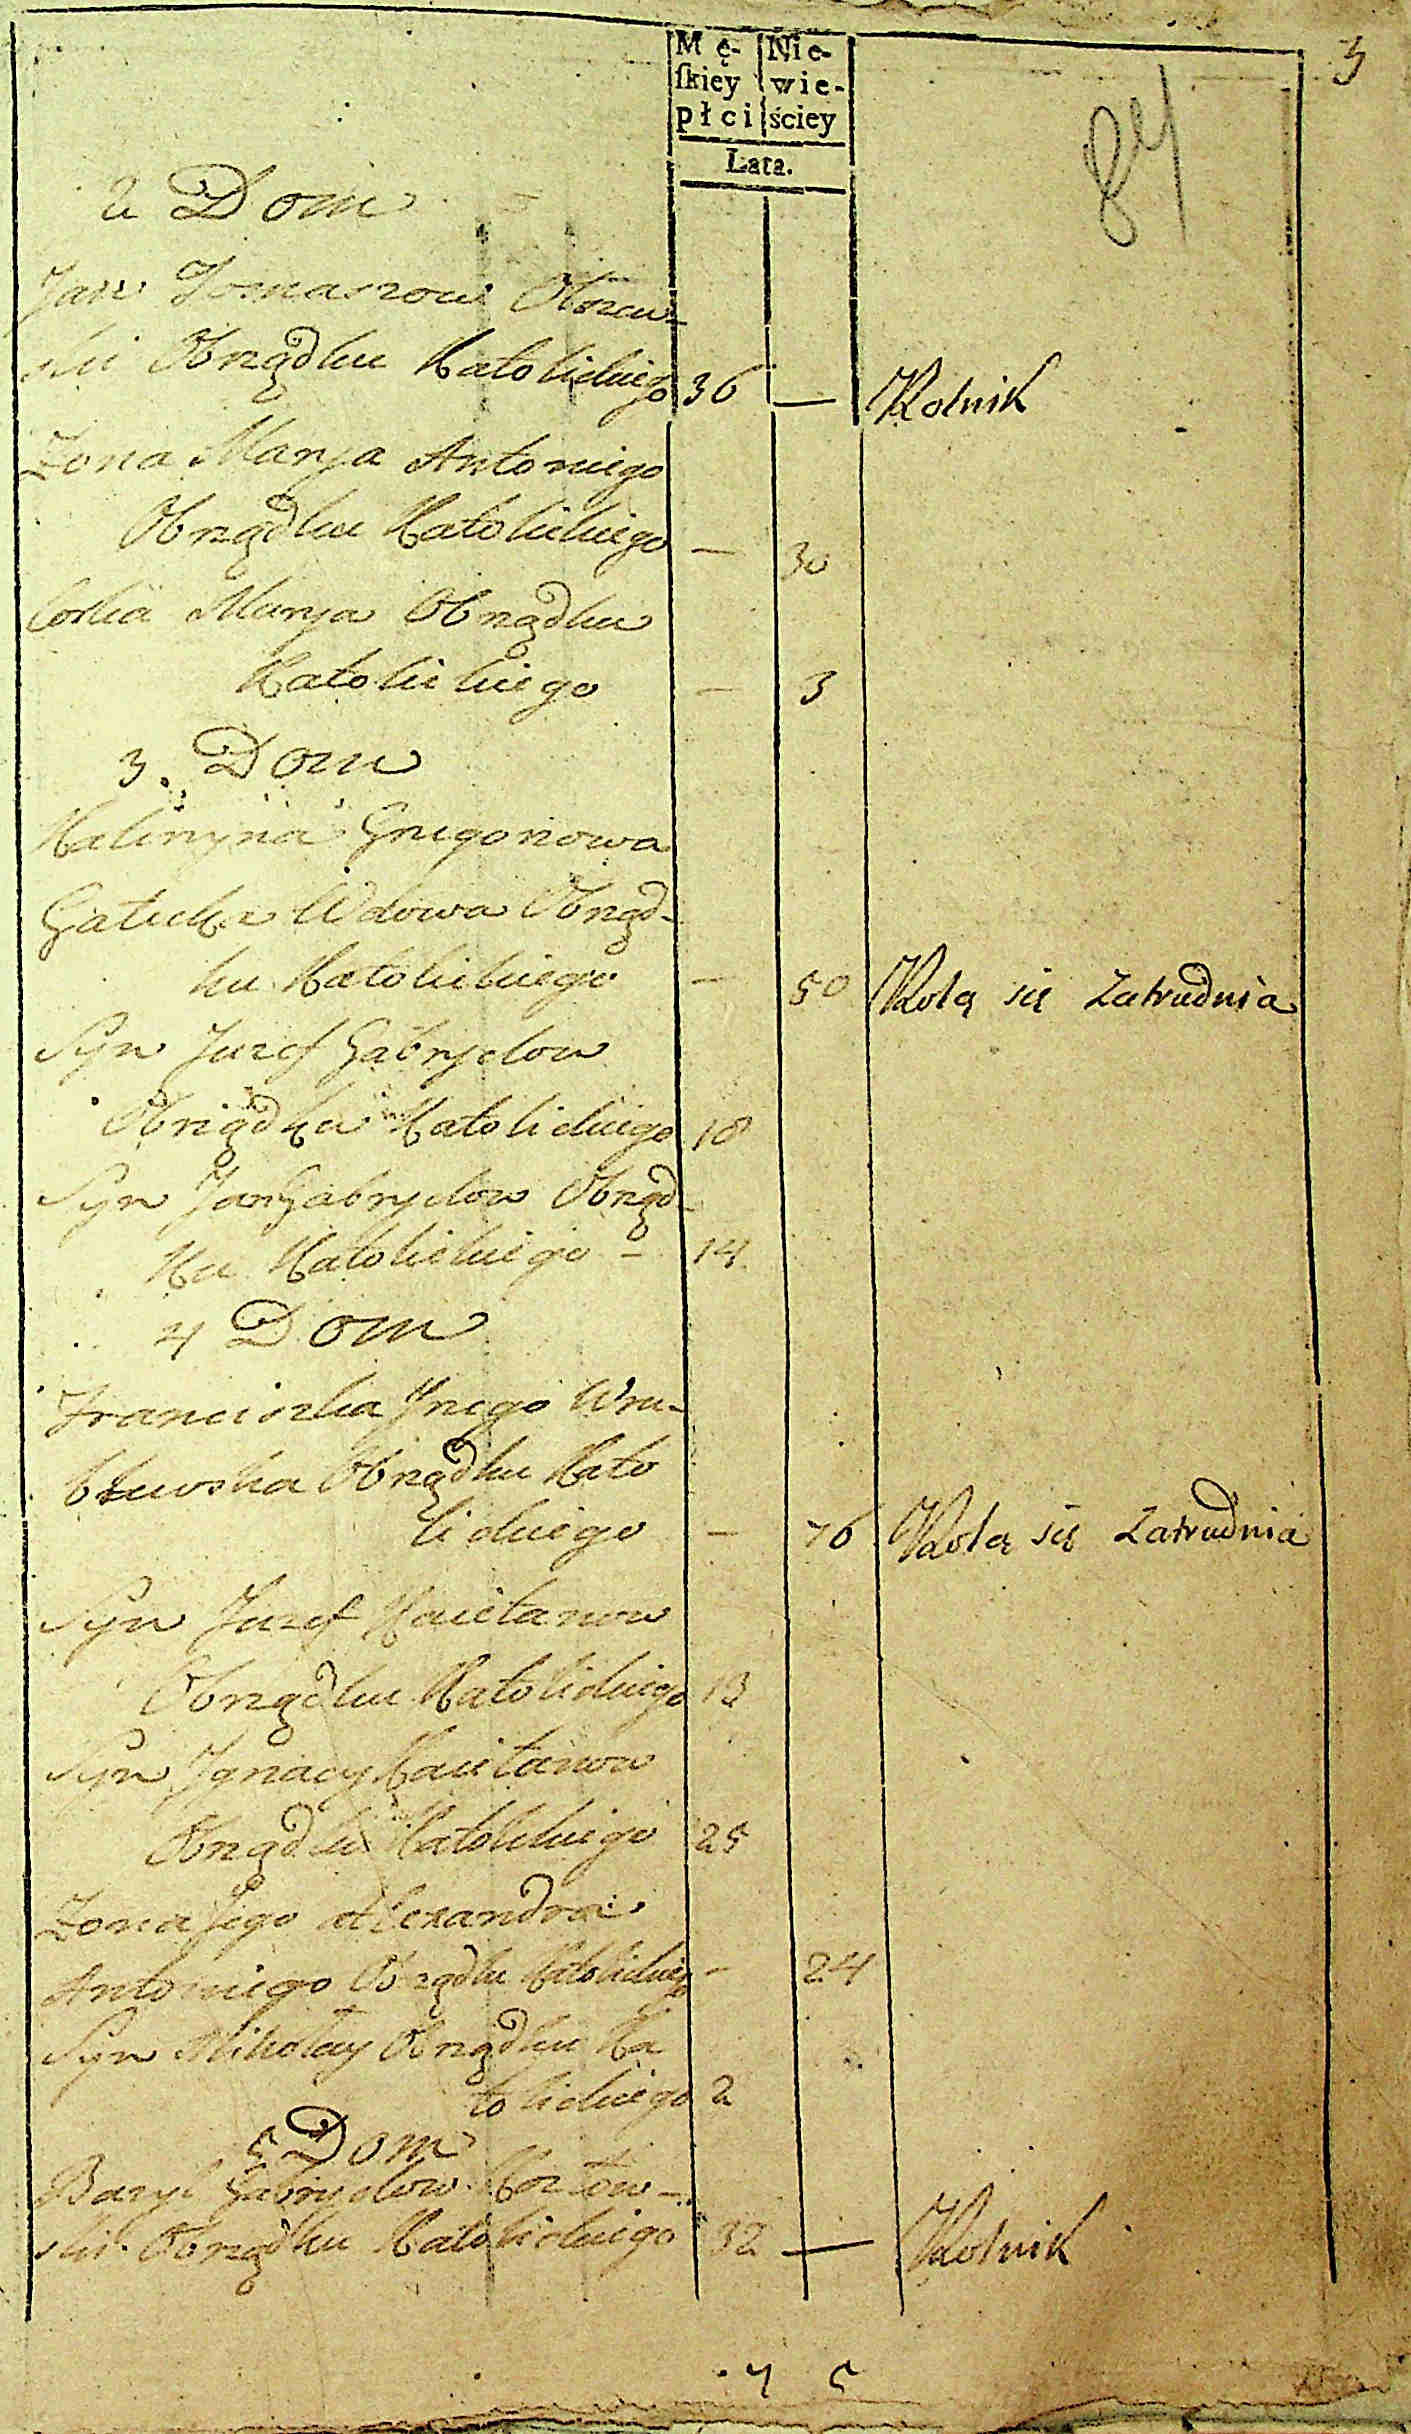 5
84
Mę- Nie-
ſkiey wie-
płci ściey
Lata.
2 Dom
Jan Tomaszow
ski Obrządku Katolickiego 36 — Rolnik
Zona Marya Antoniego
Obrządku Katolickiego — 30
Corka Marya Obrządku
Katolickiego — 3
3. Dom
Katiryna Gregorowa
Wdowa Obrząd-
ku Katolickiego — 50 Rolą się Zatrudnia
Syn Juzef Gabryelow
Obrządku Katolickiego 18
Syn Jan Gabryelow Obrząd-
ku Katolickiego — 14
4 Dom
Franciszka Wru-
blewska Obrządku Kato
lickiego — 76 Rolą się Zatrudnia
Syn Juzef Kaietanow
Obrządku Katolickiego 13
Syn Ignacy Kaietanow
Obrządku Katolickiego 25
Zona Jego Alexandra
Antoniego Obrządku Katolickiego — 24
Syn Mikołay Obrządku Ka
tolickiego 2
5 Dom
Bazyl Gabryelow Kozłow-
ski Obrządku Katolickiego 32 — Rolnik
7 5